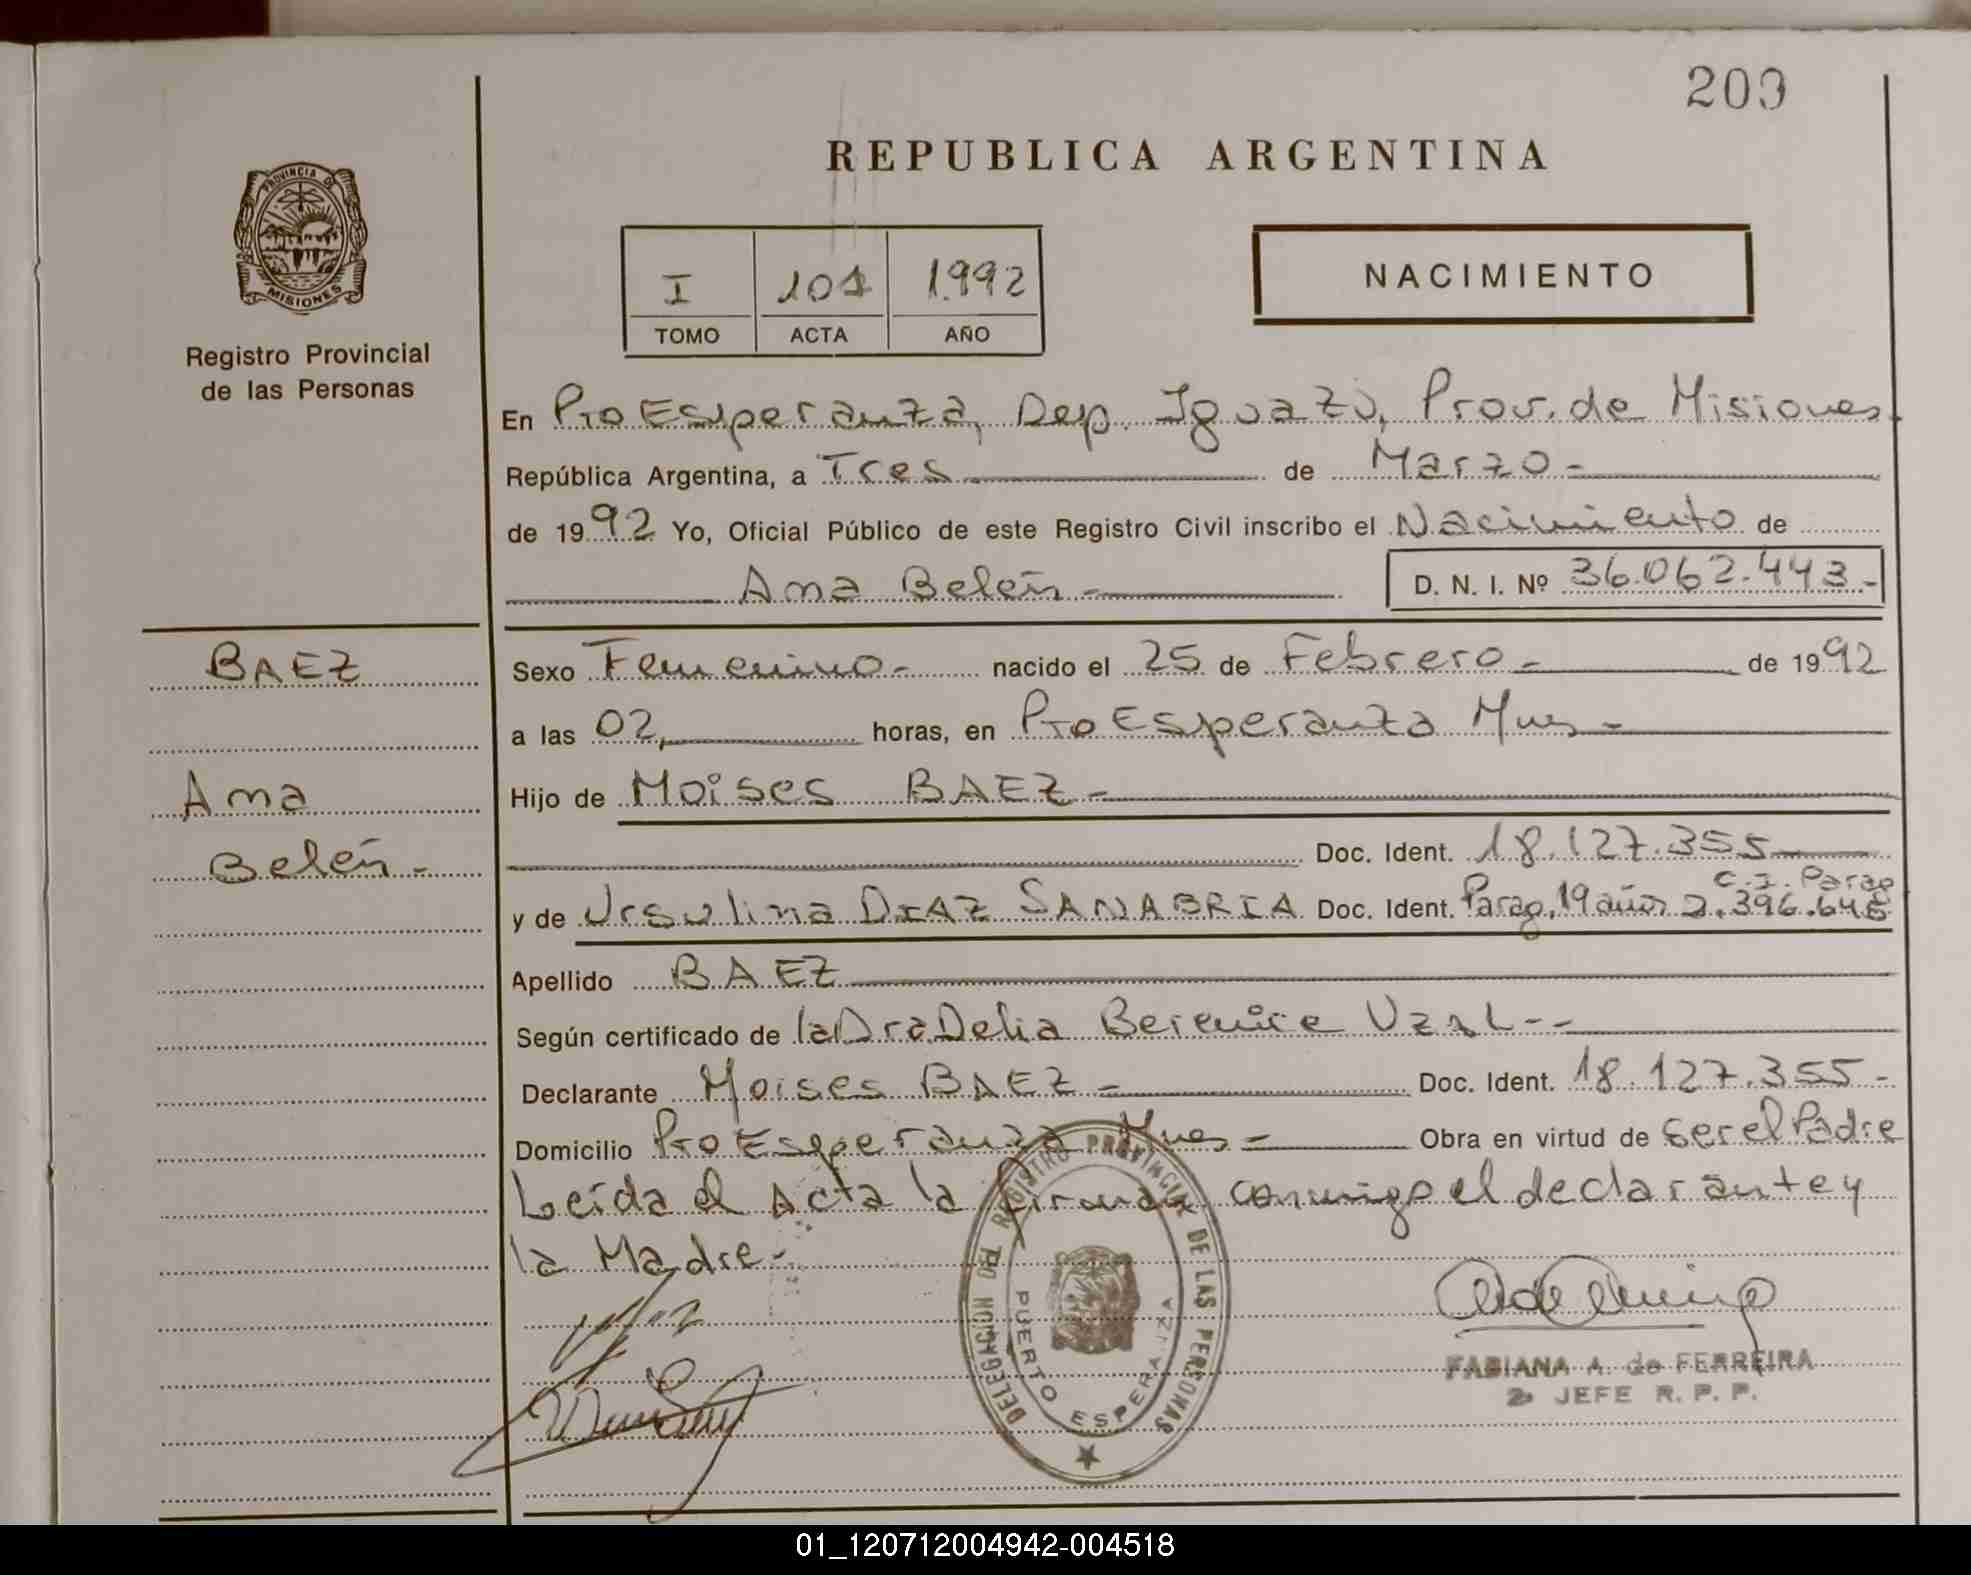 209
REPUBLICA ARGENTINA
PROVINCIA DE
MISIONES
Registro Provincial
de las Personas
I 101 1.992
TOMO ACTA AÑO
NACIMIENTO
En Pto Esperanza, Dep. Iguazú, Prov. de Misiones.
República Argentina, a Tres de Marzo -
de 1992 Yo, Oficial Público de este Registro Civil inscribo el Nacimiento de
Ana Belén - D. N. I. Nº 36.062.443.-
BAEZ
Ana
Belén -
Sexo Femenino - nacido el 25 de Febrero - de 1992
a las 02, horas, en Pto Esperanza Mnes -
Hijo de Moises BAEZ -
Doc. Ident. 18.127.355
C.I. Parag
y de Ursulina DIAZ SANABRIA Doc. Ident. Parag, 19 años 2.396.645
Apellido BAEZ
Según certificado de la Dra Delia Berenice UZAL --
Declarante Moises BAEZ - Doc. Ident. 18.127.355 -
Domicilio Pto Esperanza Mnes - Obra en virtud de ser el Padre
Leida el Acta la firman conmigo el declarante y
la Madre -
DELEGACION DEL REGISTRO PROVINCIAL DE LAS PERSONAS
PUERTO ESPERANZA
FABIANA A. de FERREIRA
2º JEFE R. P. P.
01_120712004942-004518